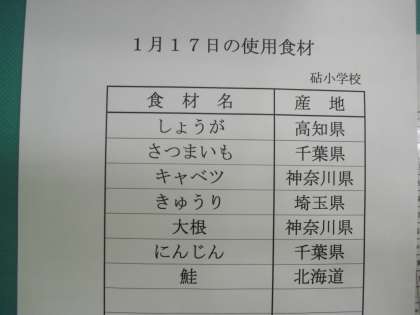 1月17日の使用食材
砧小学校
食 材 名 産 地
しょうが 高知県
さつまいも 千葉県
キャベツ 神奈川県
きゅうり 埼玉県
大根 神奈川県
にんじん 千葉県
鮭 北海道